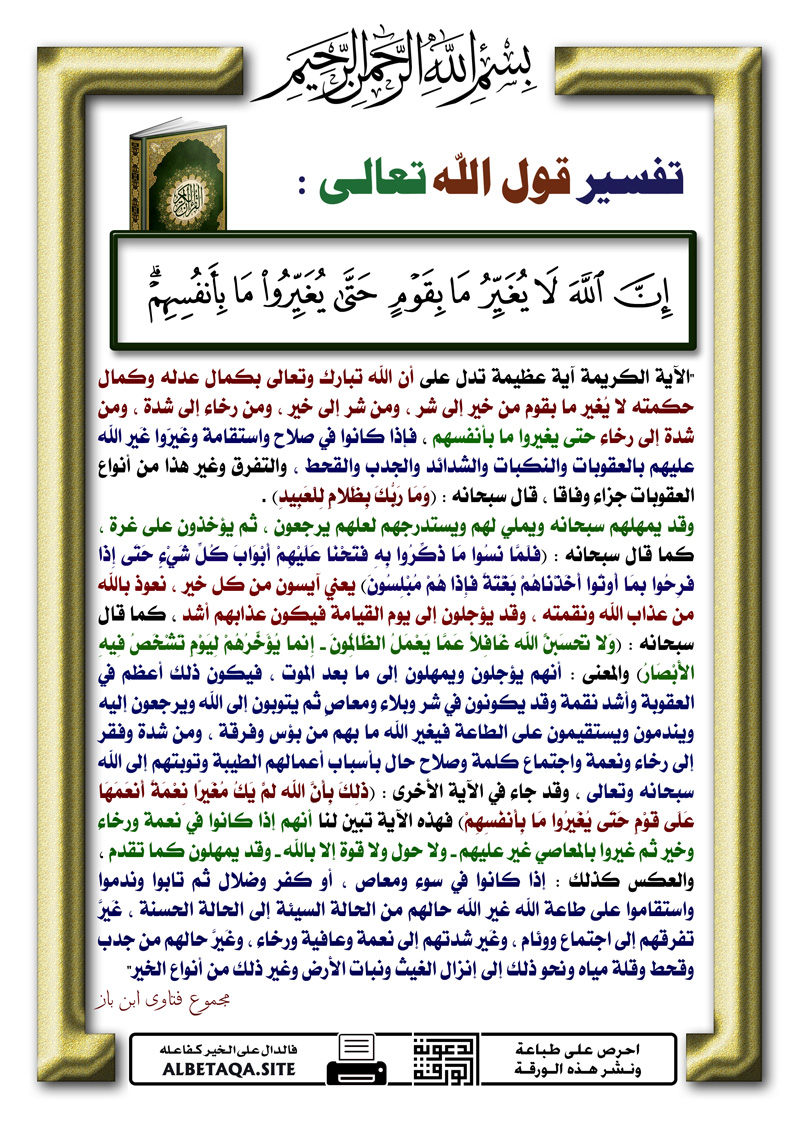 بِسْمِ اللَّهِ الرَّحْمَٰنِ الرَّحِيمِ
القرآن الكريم
تفسير قول الله تعالى :
إِنَّ ٱللَّهَ لَا يُغَيِّرُ مَا بِقَوْمٍ حَتَّىٰ يُغَيِّرُوا۟ مَا بِأَنفُسِهِمْ ۗ
"الآية الكريمة آية عظيمة تدل على أن الله تبارك وتعالى بكمال عدله وكمال
حكمته لا يُغير ما بقوم من خير إلى شر ، ومن شر إلى خير ، ومن رخاء إلى شدة ، ومن
شدة إلى رخاء حتى يغيروا ما بأنفسهم ، فإذا كانوا في صلاح واستقامة وغَيَروا غَير الله
عليهم بالعقوبات والنكبات والشدائد والجدب والقحط ، والتفرق وغير هذا من أنواع
العقوبات جزاء وفاقا ، قال سبحانه : (وَمَا رَبُّكَ بِظَلامٍ لِلعَبِيدِ) .
وقد يمهلهم سبحانه ويملي لهم ويستدرجهم لعلهم يرجعون ، ثم يؤخذون على غرة ،
كما قال سبحانه : (فَلَمَّا نَسُوا مَا ذُكِّرُوا بِهِ فَتَحْنَا عَلَيْهِمْ أَبْوَابَ كُلِّ شَيْءٍ حَتَّى إِذَا
فَرِحُوا بِمَا أُوتُوا أَخَذْنَاهُمْ بَغْتَةً فَإِذَا هُمْ مُبْلِسُونَ) يعني آيسون من كل خير ، نعوذ بالله
من عذاب الله ونقمته ، وقد يؤجلون إلى يوم القيامة فيكون عذابهم أشد ، كما قال
سبحانه : (وَلا تَحسَبَنَّ الله غَافِلاً عَمَّا يَعْمَلُ الظَّالِمُونَ ـ إِنما يُؤَخِّرُهُمْ لِيَوْمٍ تَشْخَصُ فِيهِ
الأَبْصَارُ) والمعنى : أنهم يؤجلون ويمهلون إلى ما بعد الموت ، فيكون ذلك أعظم في
العقوبة وأشد نقمة وقد يكونون في شر وبلاء ومعاصٍ ثم يتوبون إلى الله ويرجعون إليه
ويندمون ويستقيمون على الطاعة فيغير الله ما بهم من بؤس وفرقة ، ومن شدة وفقر
إلى رخاء ونعمة واجتماع كلمة وصلاح حال بأسباب أعمالهم الطيبة وتوبتهم إلى الله
سبحانه وتعالى ، وقد جاء في الآية الأخرى : (ذَلِكَ بِأَنَّ الله لَمْ يَكُ مُغَيِّرًا نِعْمَةً أَنْعَمَهَا
عَلَى قَوْمٍ حَتَّى يُغَيِّرُوا مَا بِأَنْفُسِهِمْ) فهذه الآية تبين لنا أنهم إذا كانوا في نعمة ورخاء
وخير ثم غيروا بالمعاصي غير عليهم ـ ولا حول ولا قوة إلا بالله ـ وقد يمهلون كما تقدم ،
والعكس كذلك : إذا كانوا في سوء ومعاص ، أو كفر وضلال ثم تابوا وندموا
واستقاموا على طاعة الله غير الله حالهم من الحالة السيئة إلى الحالة الحسنة ، غَيرَّ
تفرقهم إلى اجتماع ووئام ، وغير شدتهم إلى نعمة وعافية ورخاء ، وغَيرَّ حالهم من جدب
وقحط وقلة مياه ونحو ذلك إلى إنزال الغيث ونبات الأرض وغير ذلك من أنواع الخير"
مجموع فتاوى ابن باز
احرص على طباعة
ونشر هذه الورقة
الدعوية
الورقة
فالدال على الخير كفاعله
ALBETAQA.SITE